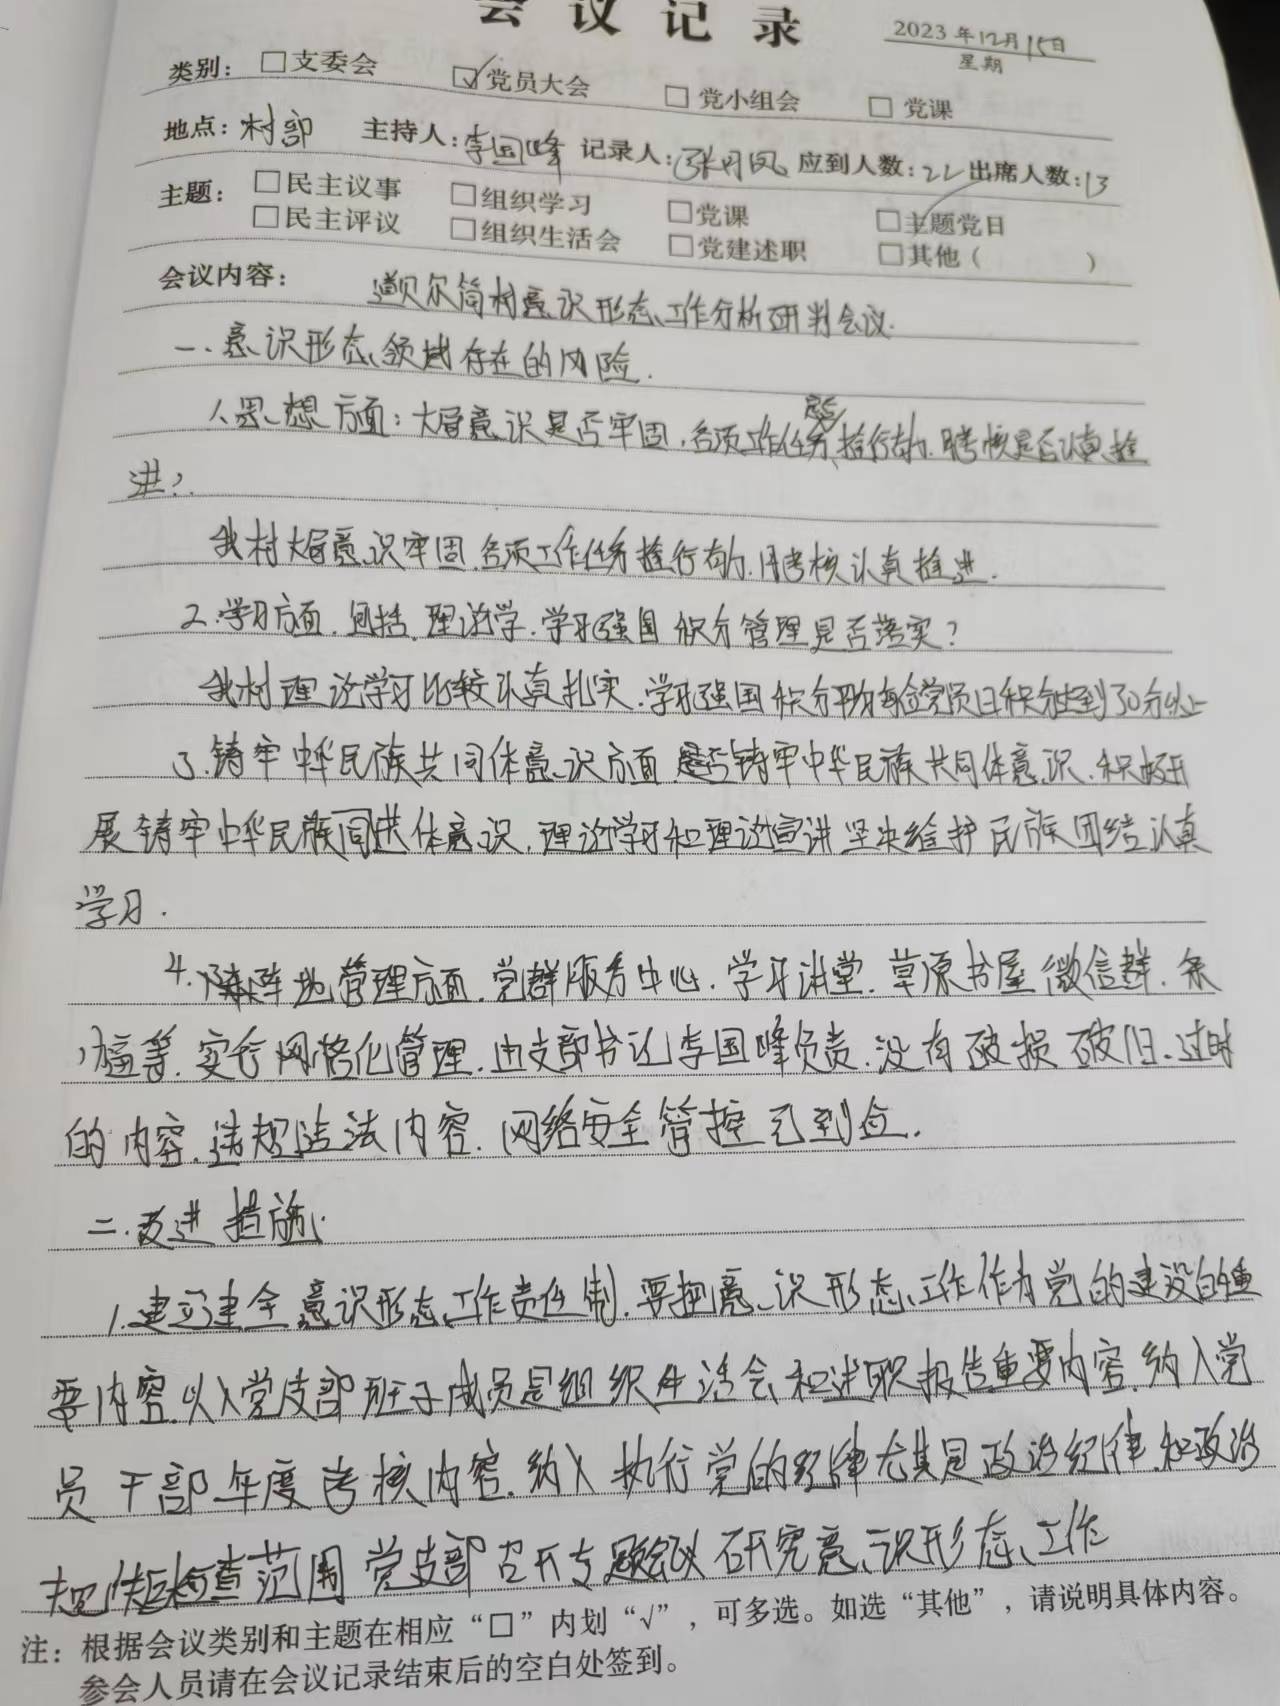 会议记录
2023年12月15日
星期
类别：□支委会 ☑党员大会 □党小组会 □党课
地点：村部 主持人：李国峰 记录人：张丹凤 应到人数：22 出席人数：13
主题：□民主议事 □组织学习 □党课 □主题党日
□民主评议 □组织生活会 □党建述职 □其他（ ）
会议内容： 道贝尔筒村意识形态工作分析研判会议.
一.意识形态领域存在的风险.
1.思想方面：大局意识是否牢固.各项工作任务是否推行有力.月考核是否认真推
进?.
我村大局意识牢固.各项工作任务推行有力.月考核认真推进.
2.学习方面.包括.理论学.学习强国积分管理是否落实?
我村理论学习比较认真扎实.学习强国积分平均每位党员日积分达到30分以上
3.铸牢中华民族共同体意识方面.是否铸牢中华民族共同体意识.积极开
展铸牢中华民族同共体意识.理论学习和理论宣讲坚决维护民族团结认真
学习.
4.阵地管理方面.党群服务中心.学习讲堂.草原书屋微信群.条
幅等.实行网格化管理.由支部书记李国峰负责.没有破损破旧.过时
的内容.违规违法内容.网络安全管控已到位.
二.改进措施.
1.建立建全意识形态工作责任制.要把意识形态工作作为党的建设的重
要内容.以入党支部班子成员是组织生活会和述职报告重要内容.纳入党
员干部年度考核内容.纳入执行党的纪律尤其是政治纪律.和政治
规矩检查范围党支部召开专题会议研究意识形态工作
注：根据会议类别和主题在相应“□”内划“√”，可多选。如选“其他”，请说明具体内容。
参会人员请在会议记录结束后的空白处签到。